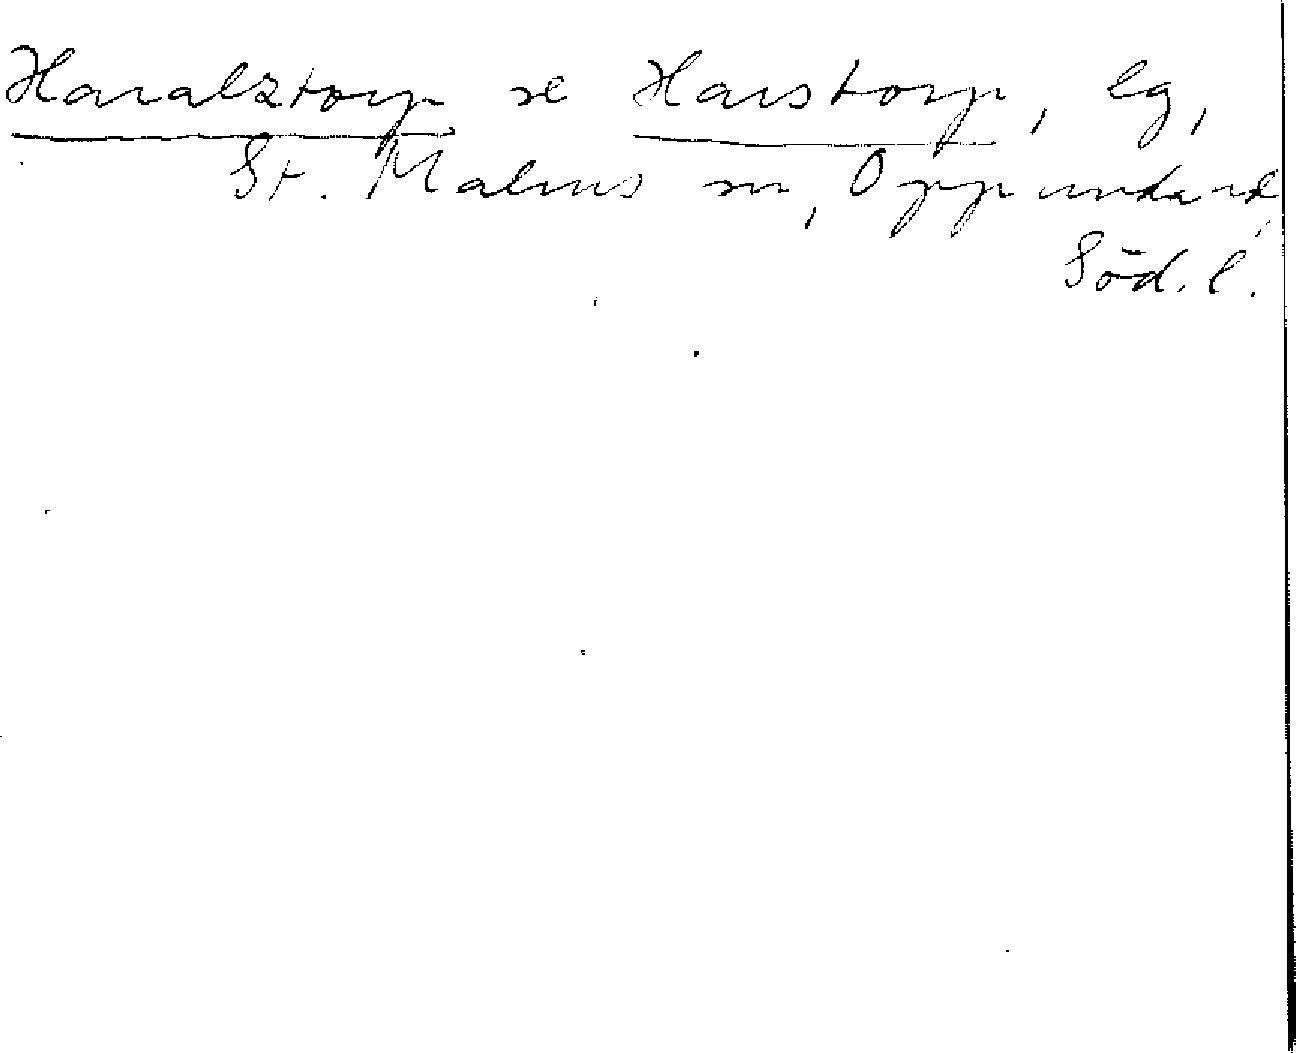 Haralztorp se Harstorp, lg,
St. Malms sn, Oppunda hd,
Söd. l.